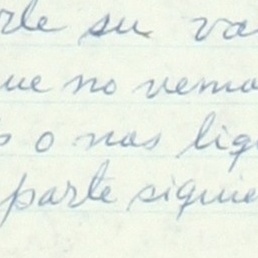 rle su va
ue no vemo
s o nos lig
parte siguie